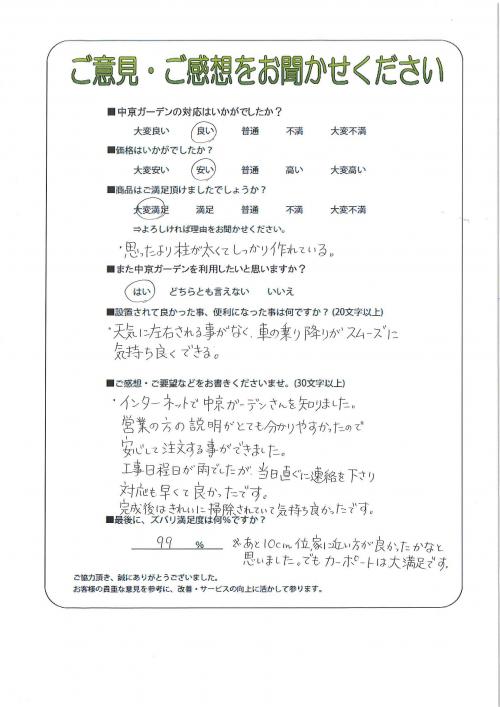 ご意見・ご感想をお聞かせください
■中京ガーデンの対応はいかがでしたか？
大変良い 良い 普通 不満 大変不満
■価格はいかがでしたか？
大変安い 安い 普通 高い 大変高い
■商品はご満足頂けましたでしょうか？
大変満足 満足 普通 不満 大変不満
⇒よろしければ理由をお聞かせください。
・思ったより柱が太くてしっかり作れている。
■また中京ガーデンを利用したいと思いますか？
はい どちらとも言えない いいえ
■設置されて良かった事、便利になった事は何ですか？(20文字以上)
・天気に左右される事がなく、車の乗り降りがスムーズに
気持ち良くできる。
■ご感想・ご要望などをお書きくださいませ。(30文字以上)
・インターネットで中京ガーデンさんを知りました。
営業の方の説明がとても分かりやすかったので
安心して注文する事ができました。
工事日程日が雨でしたが、当日直ぐに連絡を下さり
対応も早くて良かったです。
完成後はきれいに掃除されていて気持ち良かったです。
■最後に、ズバリ満足度は何％ですか？
99 % ※あと10cm位、家に近い方が良かったかなと
思いました。でもカーポートは大満足です。
ご協力頂き、誠にありがとうございました。
お客様の貴重な意見を参考に、改善・サービスの向上に活かして参ります。